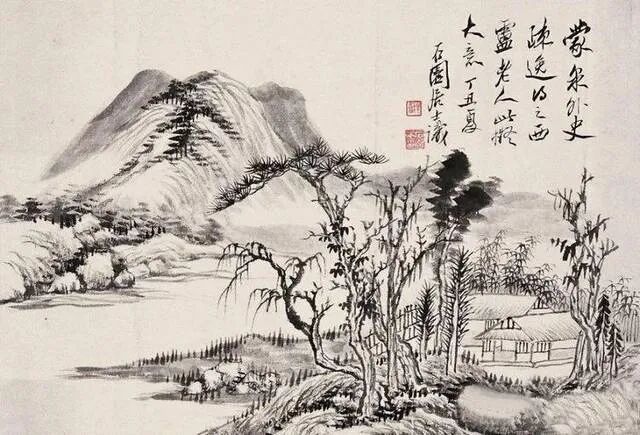 蒙泉外史
疎逸得之西
盧老人此擬
大意丁丑夏
石園居士瀛